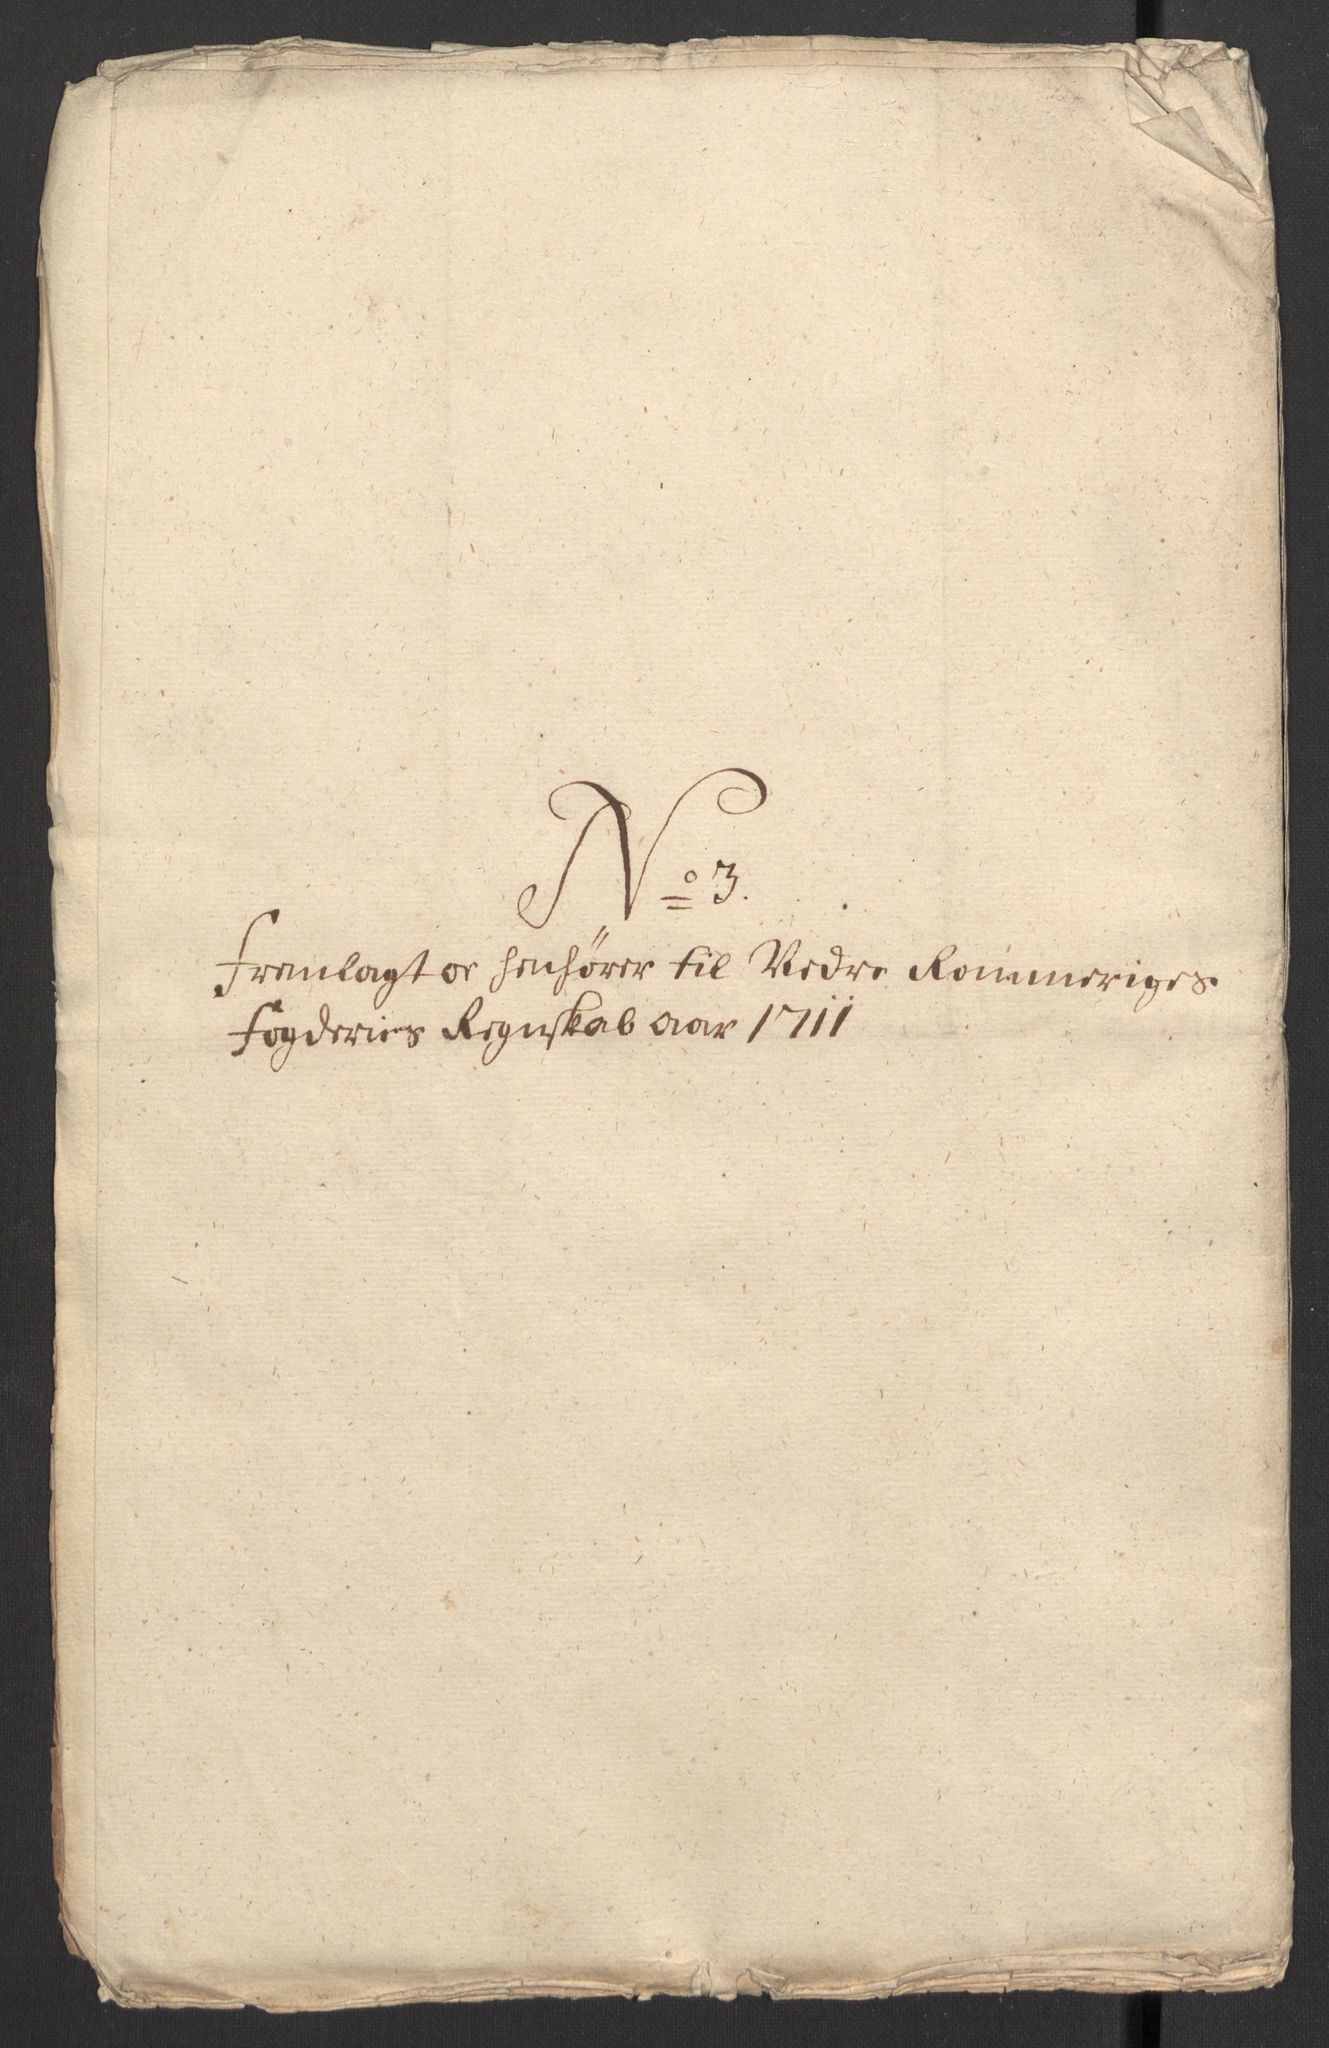 No 3.
Fremlagt oc henhörer til Nedre Rommeriges
Fogderies Regnskab aar 1711